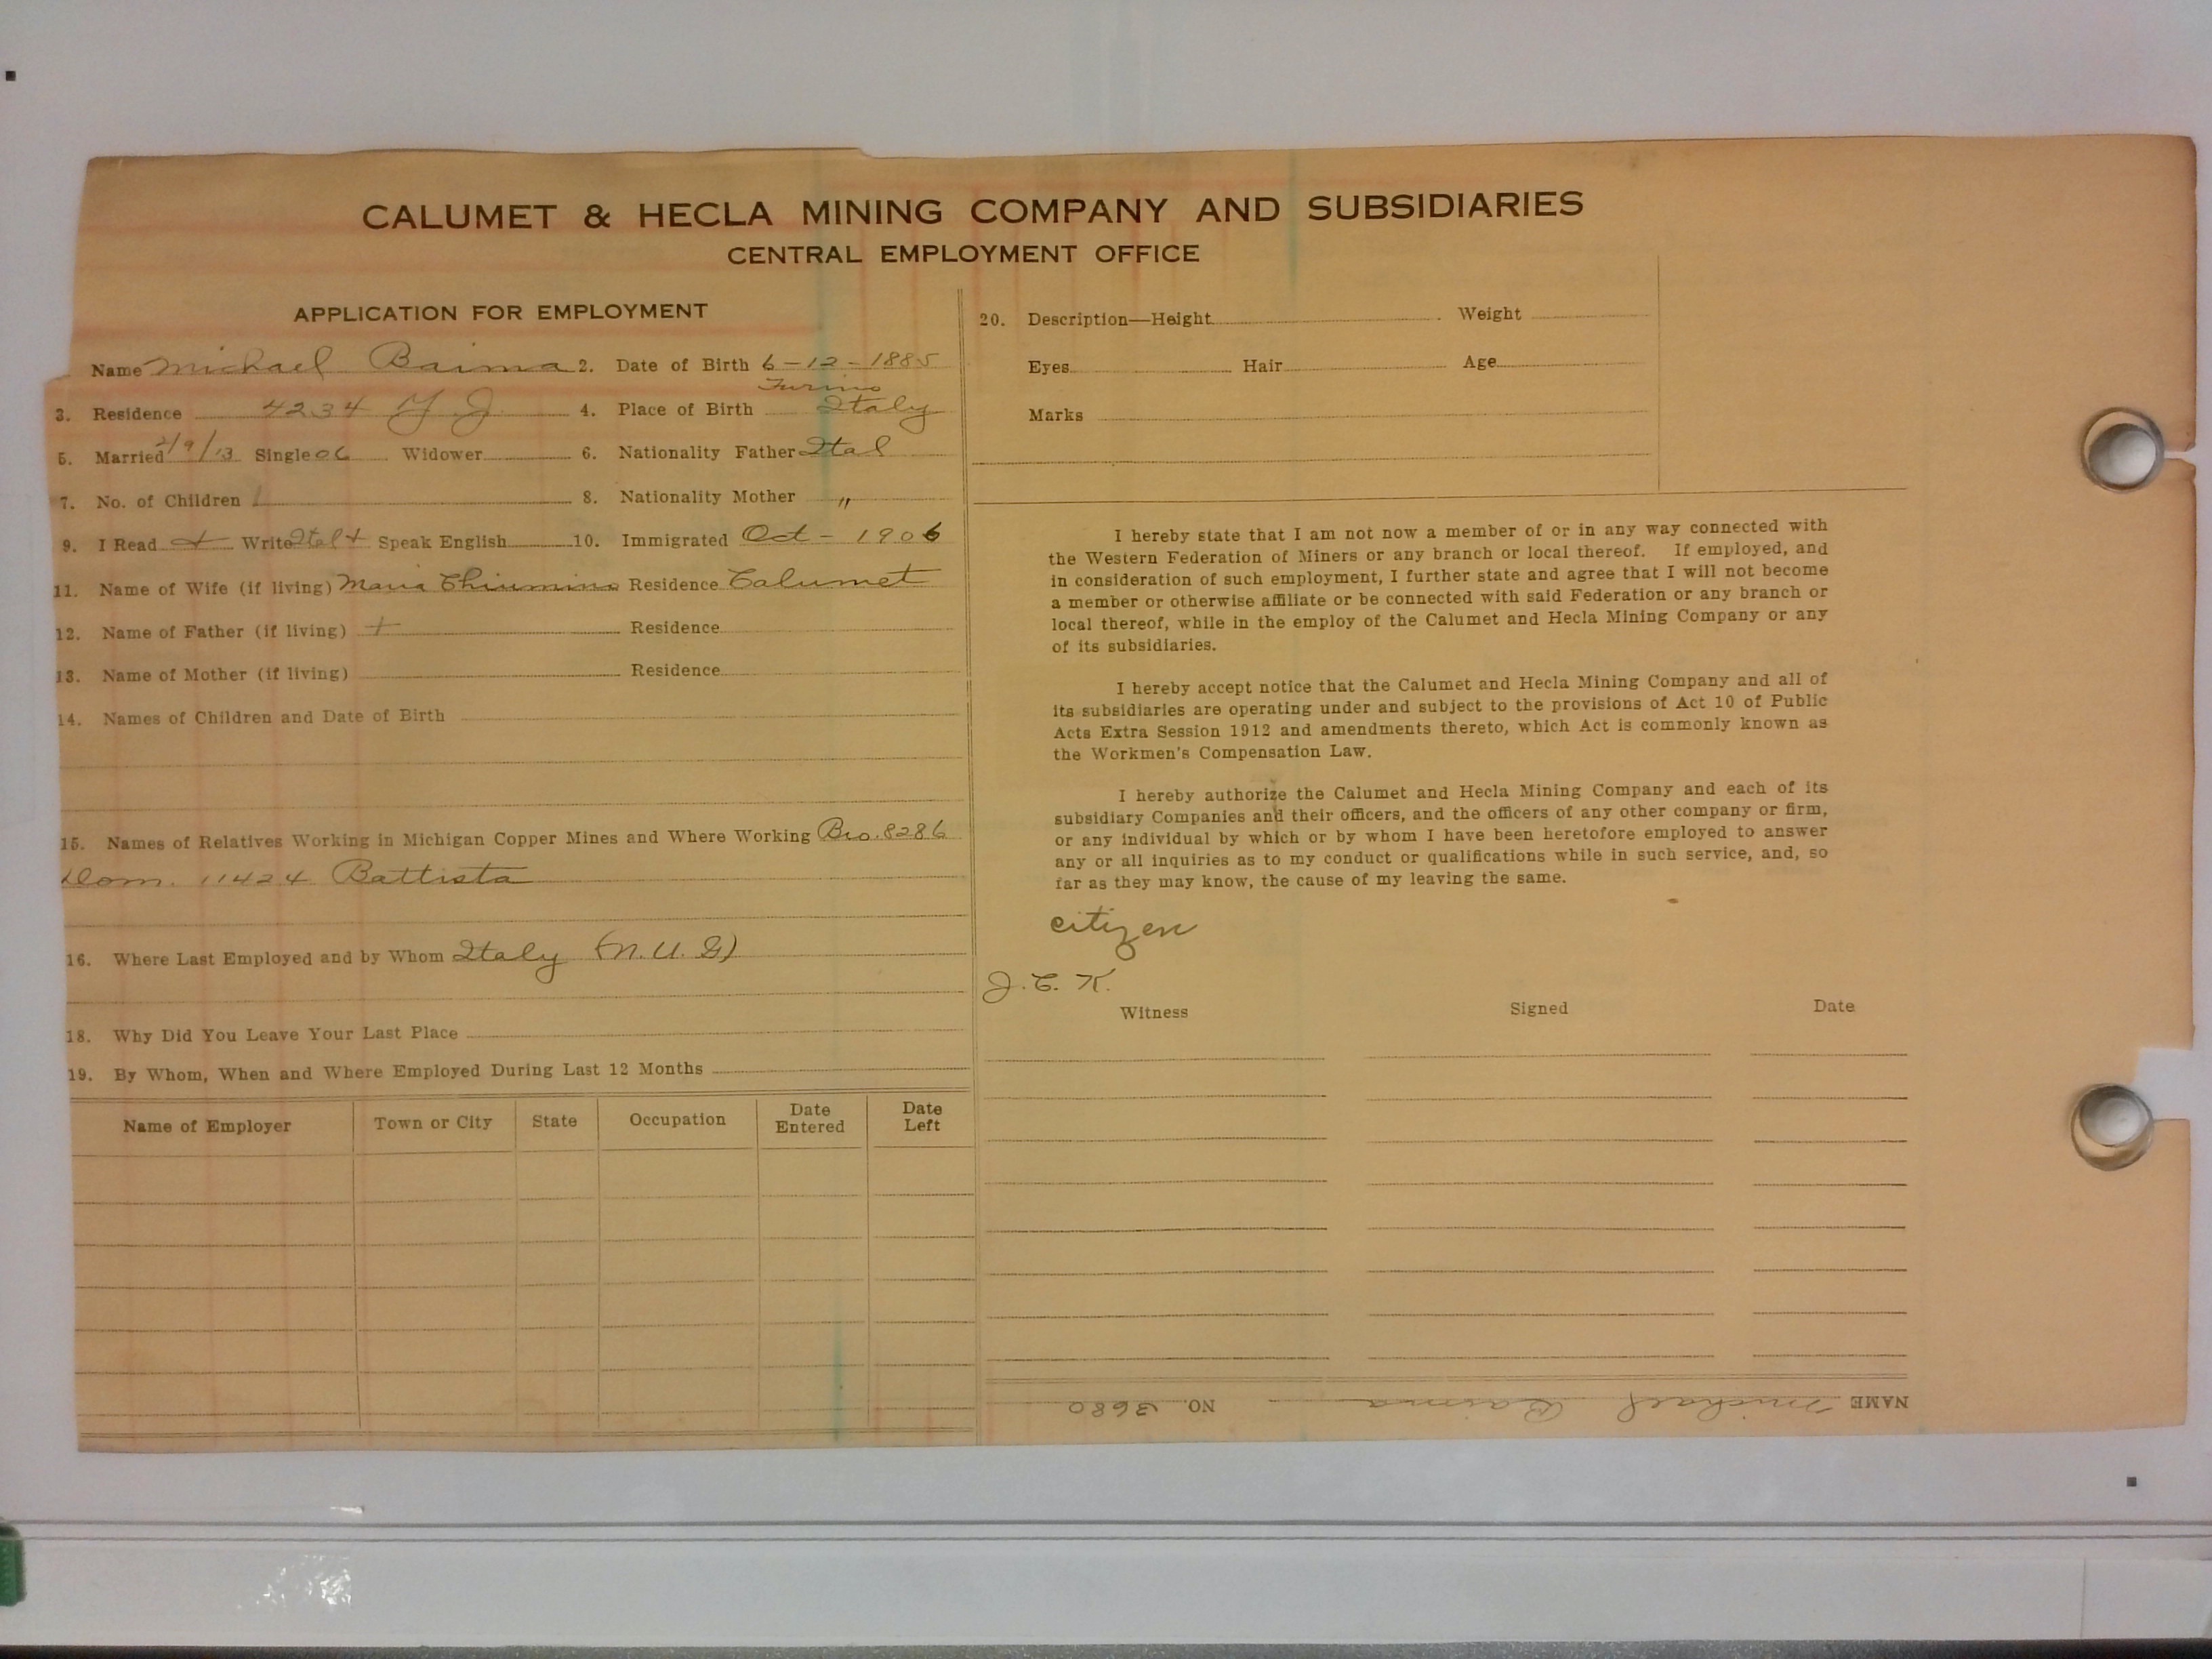 CALUMET & HECLA MINING COMPANY AND SUBSIDIARIES
CENTRAL EMPLOYMENT OFFICE
APPLICATION FOR EMPLOYMENT
Name Michael Baima 2. Date of Birth 6-12-1885
Turino
3. Residence 4234 Y J 4. Place of Birth Italy
5. Married 2/9/13 Single 06 Widower 6. Nationality Father Ital
7. No. of Children 1 8. Nationality Mother "
9. I Read + Write Ital + Speak English 10. Immigrated Oct - 1906
11. Name of Wife (if living) Maria Residence Calumet
12. Name of Father (if living) + Residence
13. Name of Mother (if living) Residence
14. Names of Children and Date of Birth
15. Names of Relatives Working in Michigan Copper Mines and Where Working Bro. 8286
Dom. 11424 Battista
16. Where Last Employed and by Whom Italy (N.U.S)
18. Why Did You Leave Your Last Place
19. By Whom, When and Where Employed During Last 12 Months
Name of Employer Town or City State Occupation Date Entered Date Left
20. Description—Height Weight
Eyes Hair Age
Marks
I hereby state that I am not now a member of or in any way connected with
the Western Federation of Miners or any branch or local thereof. If employed, and
in consideration of such employment, I further state and agree that I will not become
a member or otherwise affiliate or be connected with said Federation or any branch or
local thereof, while in the employ of the Calumet and Hecla Mining Company or any
of its subsidiaries.
I hereby accept notice that the Calumet and Hecla Mining Company and all of
its subsidiaries are operating under and subject to the provisions of Act 10 of Public
Acts Extra Session 1912 and amendments thereto, which Act is commonly known as
the Workmen's Compensation Law.
I hereby authorize the Calumet and Hecla Mining Company and each of its
subsidiary Companies and their officers, and the officers of any other company or firm,
or any individual by which or by whom I have been heretofore employed to answer
any or all inquiries as to my conduct or qualifications while in such service, and, so
far as they may know, the cause of my leaving the same.
citizen
J. C. K.
Witness Signed Date
NAME Michael Baima NO. 3680